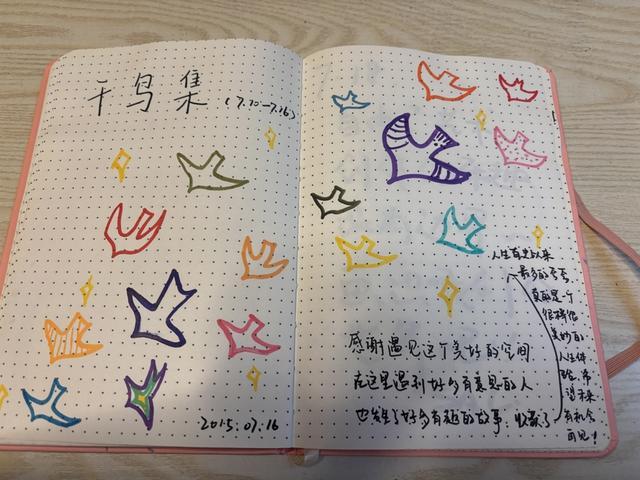 千鸟集 (7.10-7.16)
2015.07.16
感谢遇见这个美好的空间
在这里遇到好多有意思的人
也发生了好多有趣的故事.收获了
人生有史以来
最多的夸夸,
真的是个
很棒很
美妙的
人生体
验.希
望未来
有机会
再见!